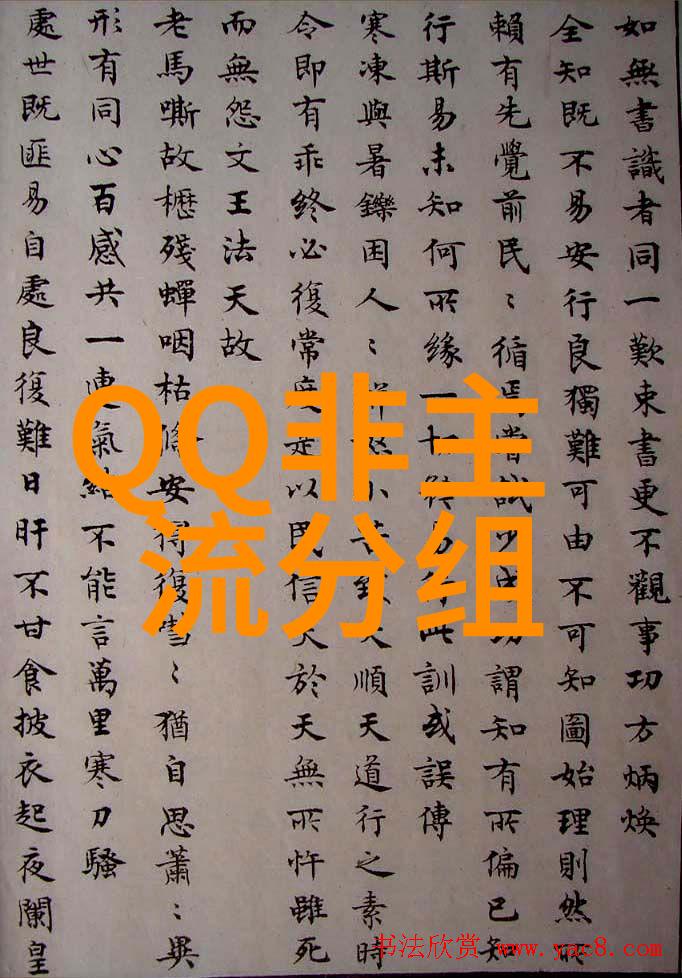 如無書識者同一歎束書更不觀事功方炳煥
全知既不易安行良獨難可由不可知圖始理則然所
賴有先覺前民〻循焉嘗試謂知有所偏已知
行斯易未知何所緣一易行此訓或誤傳
寒凍與暑鑠困人〻小天順天道行之素時
令即有乖終必復常度是以民信天於天無所忤雖死
而無怨文王法天故
老馬嘶故櫪殘蟬咽枯條安得復〻猶自思蕭〻異
形有同心百感共一連氣結不能言萬里寒刀騷
處世既匪易自處良復難日旰不甘食披衣起夜闌皇
QQ非主
流分组
书法欣赏 www.yac8.com